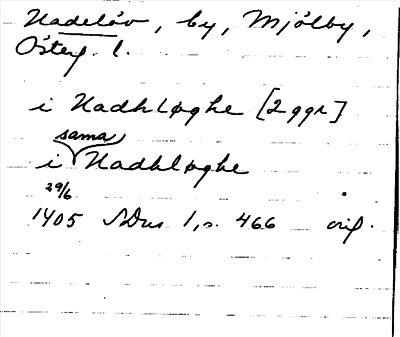 Hadelöv, by, Mjölby,
Österg. l.
i Hadhløghe [2 ggr]
sama
i Hadhløghe
29/6
1405 SDns 1, s. 466 orig.